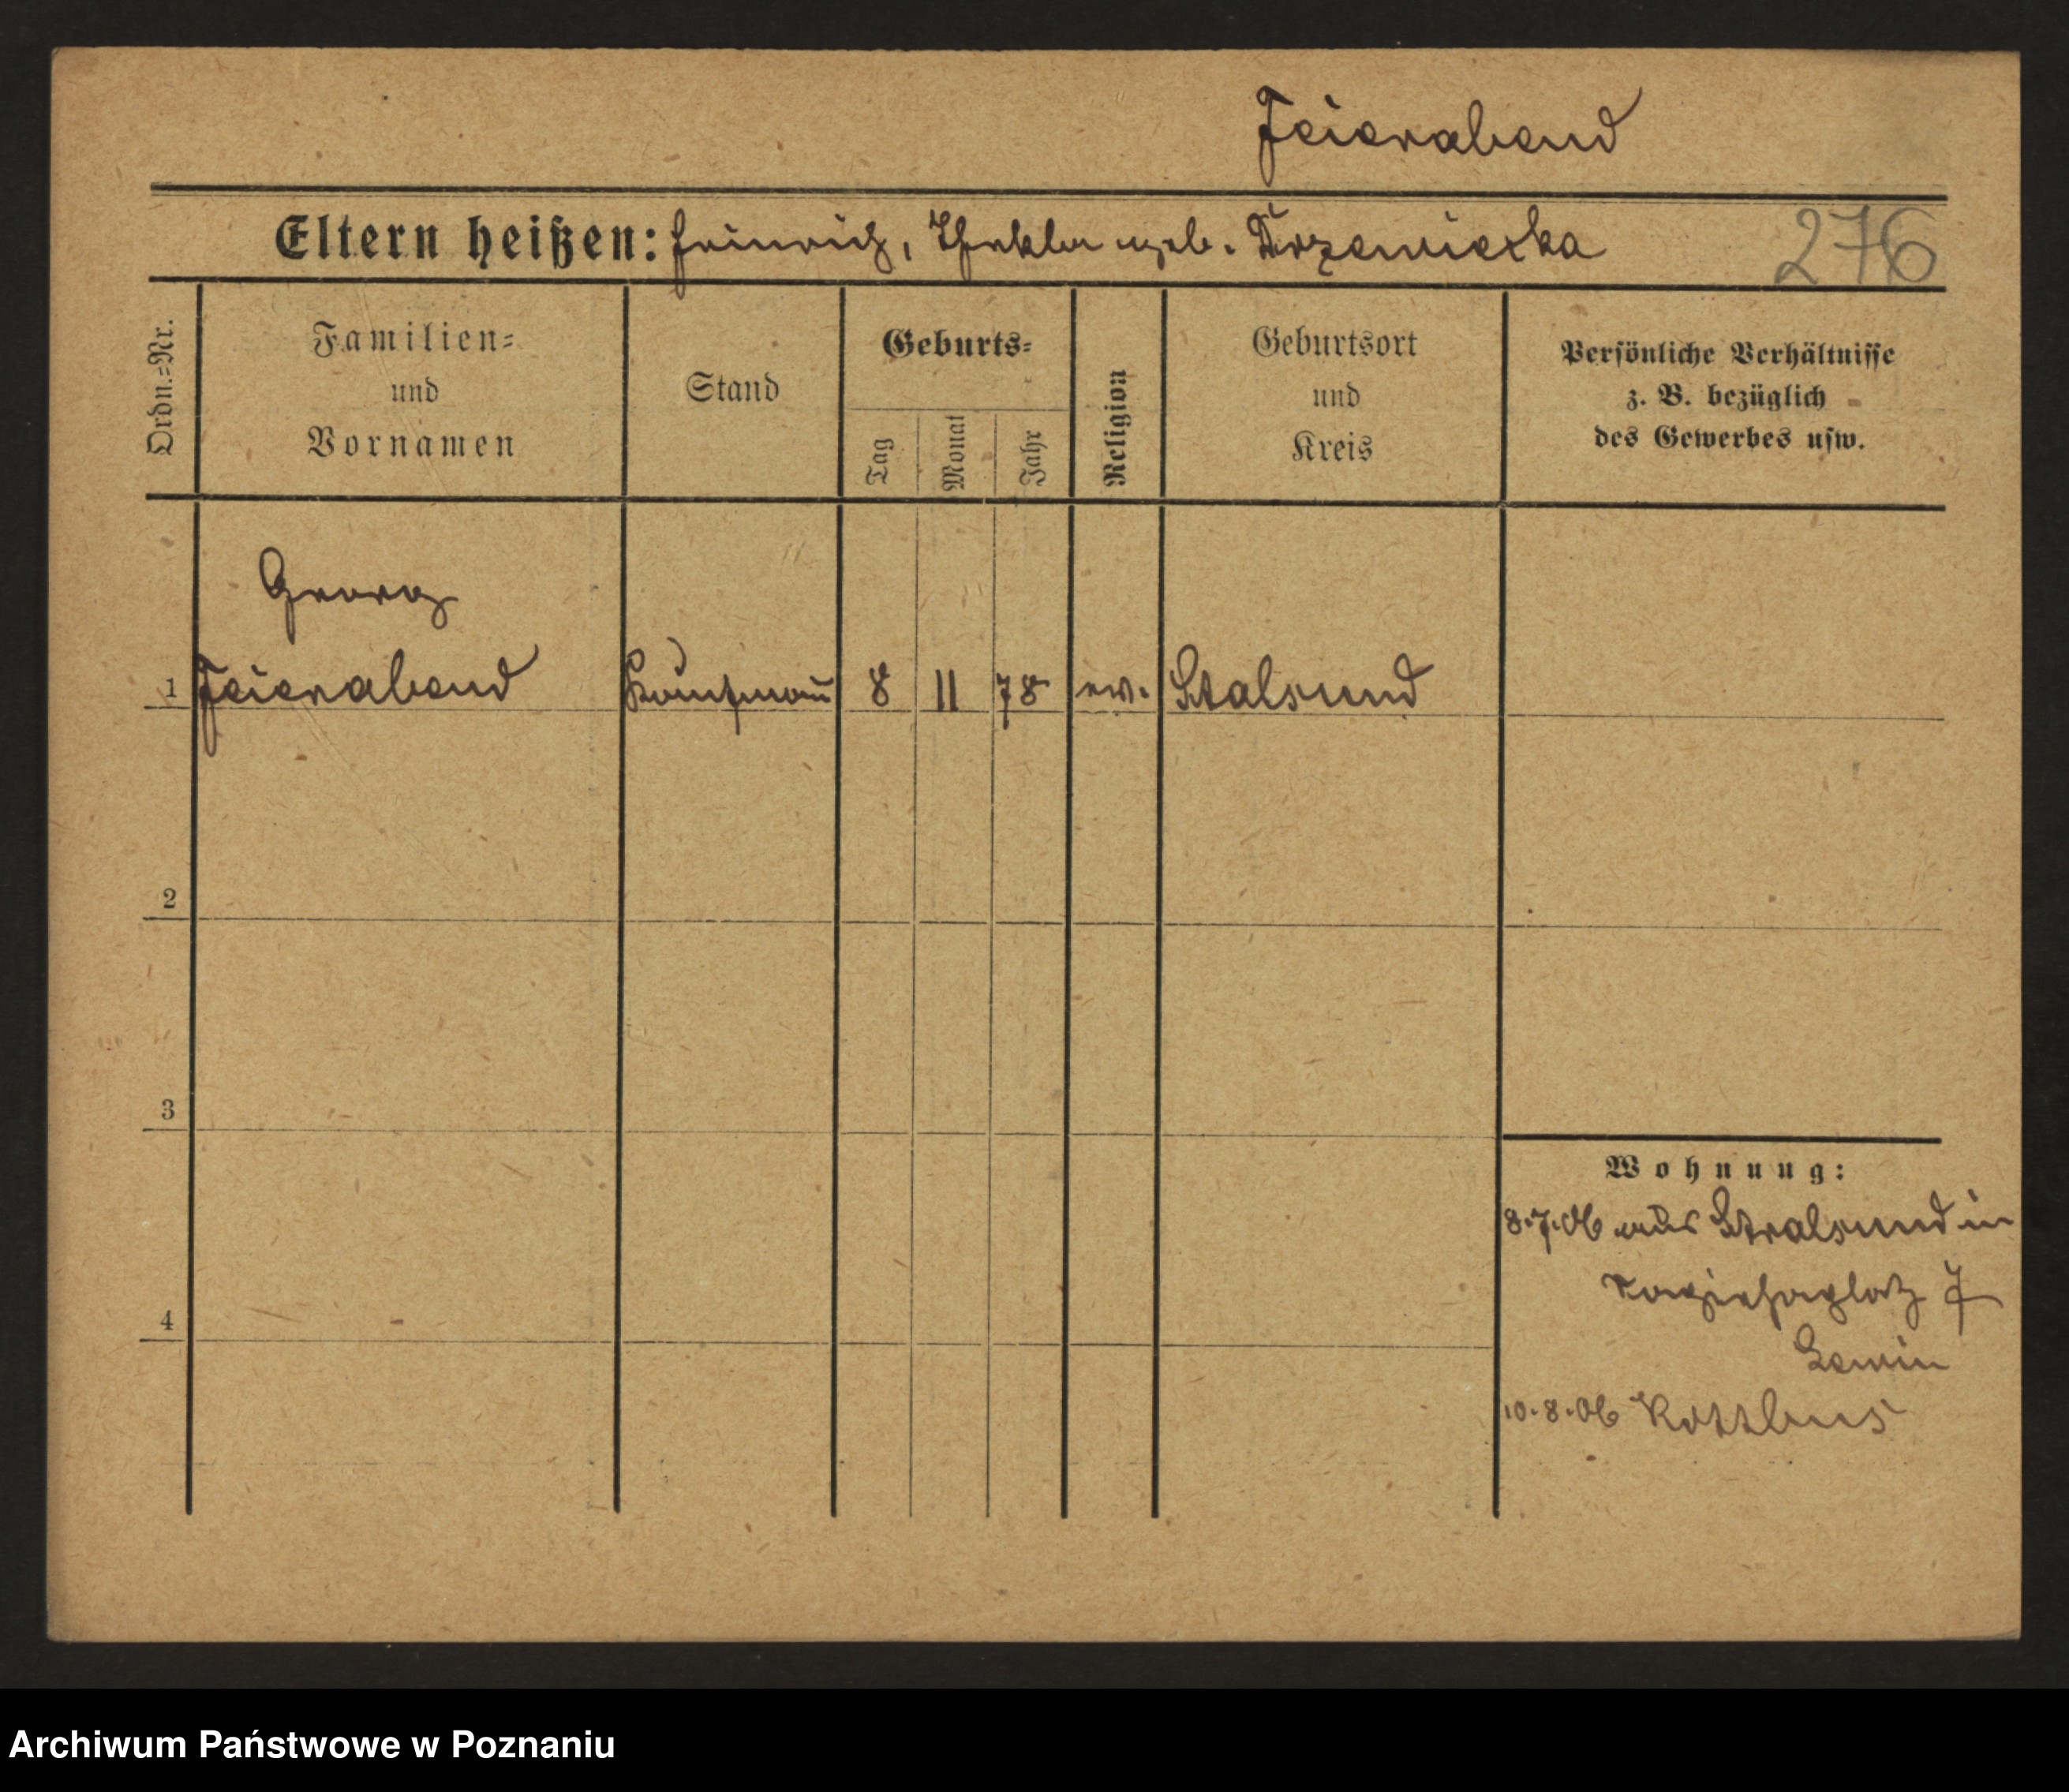 Feierabend
Eltern heißen: Heinrich, Thekla geb. Drzewiecka
276
Ordn.-Nr.
Familien-
und
Vornamen
Stand
Geburts-
Tag
Monat
Jahr
Religion
Geburtsort
und
Kreis
Persönliche Verhältnisse
z. B. bezüglich
des Gewerbes usw.
Georg
1 Feierabend Kaufmann 8 11 78 ev. Stalsund
2
3
4
Wohnung:
8.7.06 aus Stralsund in
Sapiehaplatz 7
Lewin
10.8.06 Kottbus
Archiwum Państwowe w Poznaniu